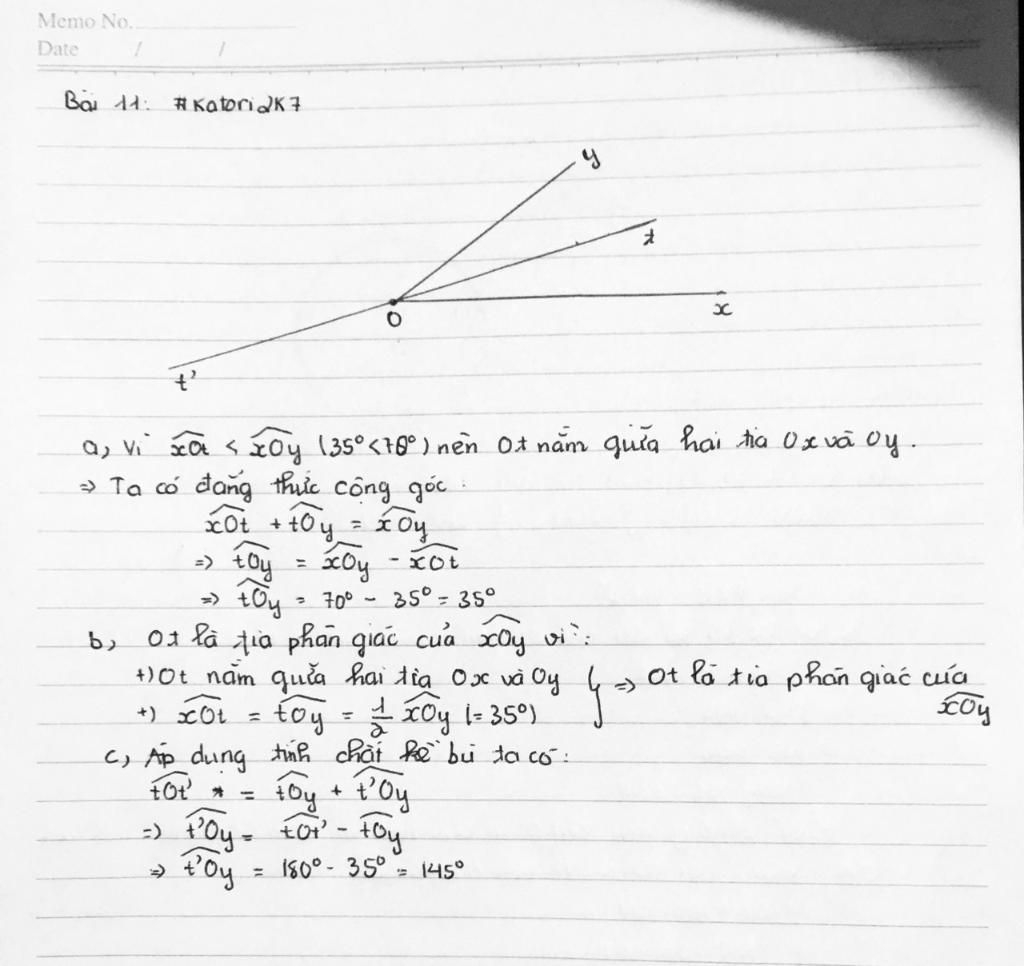 Memo No.
Date / /
Bài 11: #Katori2K7
y
t
x
O
t'
a, Vì xOt < xOy (35° < 70°) nên Ot nằm giữa hai tia Ox và Oy.
⇒ Ta có đẳng thức cộng góc:
xOt + tOy = xOy
⇒ tOy = xOy - xOt
⇒ tOy = 70° - 35° = 35°
b, Ot là tia phân giác của xOy vì:
+) Ot nằm giữa hai tia Ox và Oy } ⇒ Ot là tia phân giác của
+) xOt = tOy = 1/2 xOy (= 35°) xOy
c, Áp dụng tính chất kề bù ta có:
tOt' = tOy + t'Oy
⇒ t'Oy = tOt' - tOy
⇒ t'Oy = 180° - 35° = 145°